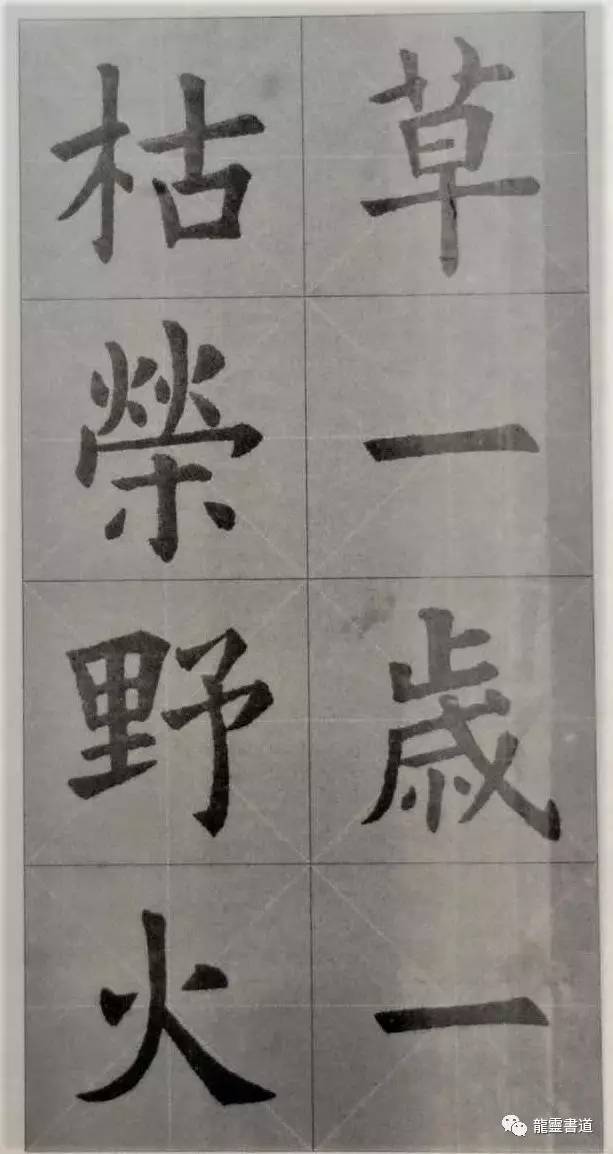 草一歳一
枯榮野火
龍靈書道